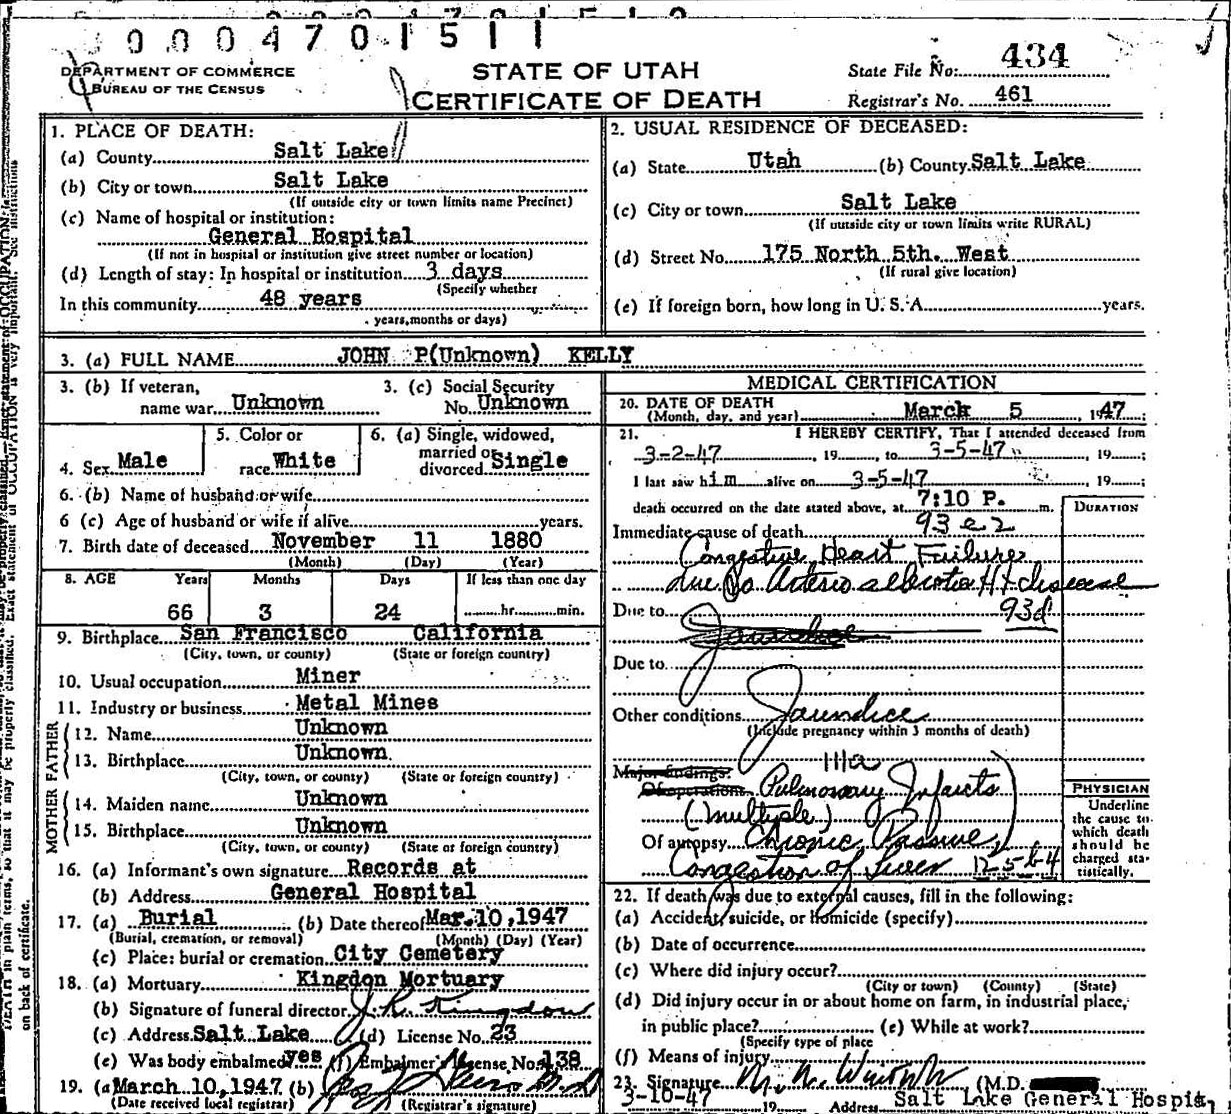 0 0 0 4 7 0 1 5 1 1
DEPARTMENT OF COMMERCE
BUREAU OF THE CENSUS
STATE OF UTAH
CERTIFICATE OF DEATH
State File No: 434
Registrar's No. 461
1. PLACE OF DEATH:
(a) County Salt Lake
(b) City or town Salt Lake
(If outside city or town limits name Precinct)
(c) Name of hospital or institution:
General Hospital
(If not in hospital or institution give street number or location)
(d) Length of stay: In hospital or institution 3 days
(Specify whether
In this community 48 years
years, months or days)
2. USUAL RESIDENCE OF DECEASED:
(a) State Utah (b) County Salt Lake
(c) City or town Salt Lake
(If outside city or town limits write RURAL)
(d) Street No. 175 North 5th. West
(If rural give location)
(e) If foreign born, how long in U. S. A. years.
3. (a) FULL NAME JOHN P(Unknown) KELLY
3. (b) If veteran,
name war Unknown
3. (c) Social Security
No. Unknown
4. Sex Male
5. Color or
race White
6. (a) Single, widowed,
married or
divorced Single
6. (b) Name of husband or wife
6 (c) Age of husband or wife if alive years.
7. Birth date of deceased November 11 1880
(Month) (Day) (Year)
8. AGE Years Months Days If less than one day
66 3 24 hr. min.
9. Birthplace San Francisco California
(City, town, or county) (State or foreign country)
10. Usual occupation Miner
11. Industry or business Metal Mines
FATHER
12. Name Unknown
13. Birthplace Unknown.
(City, town, or county) (State or foreign country)
MOTHER
14. Maiden name Unknown
15. Birthplace Unknown
(City, town, or county) (State or foreign country)
16. (a) Informant's own signature Records at
(b) Address General Hospital
17. (a) Burial (b) Date thereof Mar. 10, 1947
(Burial, cremation, or removal) (Month) (Day) (Year)
(c) Place: burial or cremation City Cemetery
18. (a) Mortuary Kingdon Mortuary
(b) Signature of funeral director J. R. Kingdon
(c) Address Salt Lake (d) License No. 23
(e) Was body embalmed yes (f) Embalmer's License No. 138
19. (a) March 10, 1947 (b)
(Date received local registrar) (Registrar's signature)
MEDICAL CERTIFICATION
20. DATE OF DEATH
(Month, day, and year) March 5, 1947
21. I HEREBY CERTIFY, That I attended deceased from
3-2-47, 19, to 3-5-47, 19;
I last saw him alive on 3-5-47, 19;
death occurred on the date stated above, at 7:10 P. m.
DURATION
93 e 2
Immediate cause of death
Congestive Heart Failure
due to Arterio sclerotic Ht disease
93d
Due to Jaundice
Due to
Other conditions Jaundice
(Include pregnancy within 3 months of death)
111a
Major findings:
Of operations Pulmonary Infarcts
(multiple)
Of autopsy Chronic Passive
Congestion of Liver 12-5-6-4
PHYSICIAN
Underline
the cause to
which death
should be
charged sta-
tistically.
22. If death was due to external causes, fill in the following:
(a) Accident, suicide, or homicide (specify)
(b) Date of occurrence
(c) Where did injury occur?
(City or town) (County) (State)
(d) Did injury occur in or about home on farm, in industrial place,
in public place? (e) While at work?
(Specify type of place
(f) Means of injury
23. Signature (M.D.
3-10-47 19 Address Salt Lake General Hospit
on back of certificate.